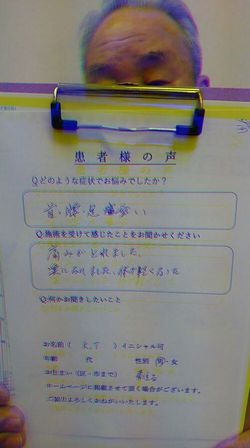 患者様の声
Q:どのような症状でお悩みでしたか?
首・腰・足
Q:施術を受けて感じたことをお聞かせください
痛みがとれました、
楽になりました、体が軽くなった
Q:何かお聞きしたいこと
お名前( K.T )イニシャル可
年齢 代 性別 男・女
お住まい(区・市まで)
ホームページに掲載させて頂く場合がございます。
ご協力よろしくおねがいいたします。